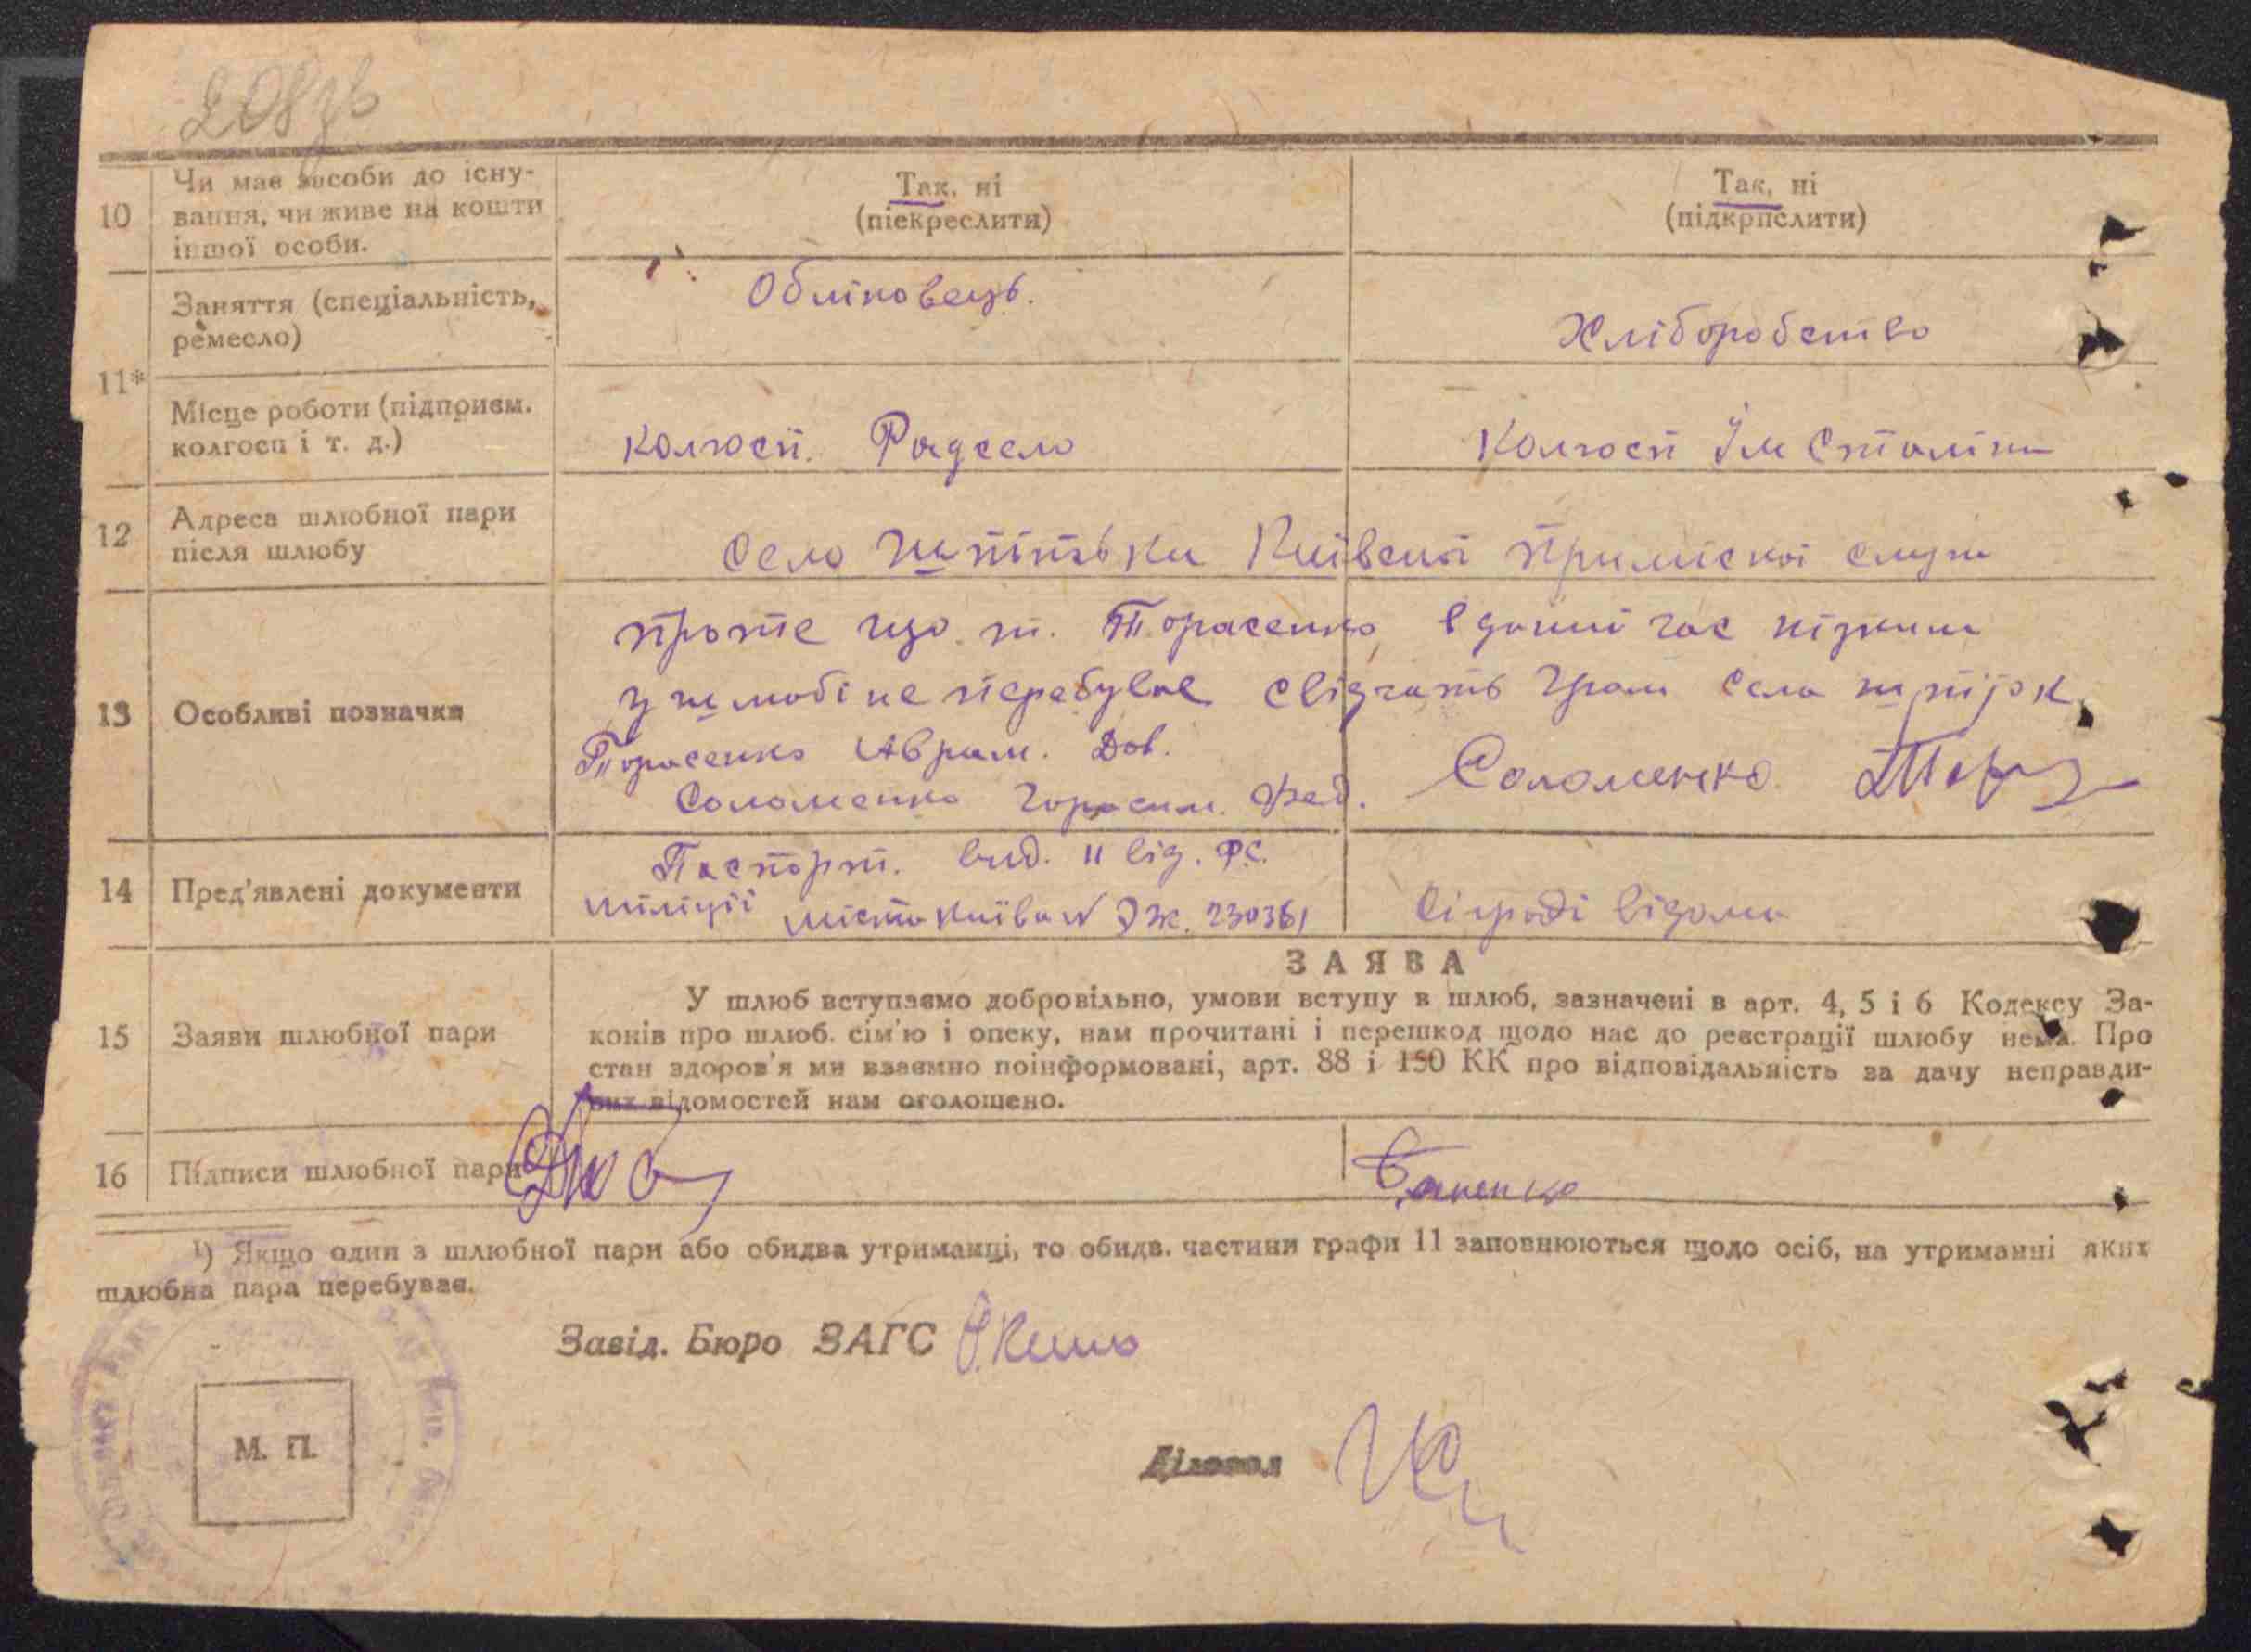 208 зв
Чи має засоби до існу-
10 вання, чи живе на кошти
іншої особи.
Так, ні
(піекреслити)
Так, ні
(підкрпслити)
11*
Заняття (спеціальність,
ремесло)
Обліковець.
Хліборобство
Місце роботи (підприєм.
колгосп і т. д.)
Колгосп. Радсело
Колгосп Ім Сталіна
12 Адреса шлюбної пари
після шлюбу
Село Шпітьки Київської Приміської смуги
13 Особливі позначки
проте що т. Тарасенко в даний час
у шлюбі не перебуває свідчать Гром села
Тарасенко Аврам. Дов.
Соломенко Горасим. Фед.
Соломенко
14 Пред'явлені документи
Паспорт. вид. 11 від. РС.
міліції міста Київа № ЭЖ. 230361
Сільраді відома
15 Заяви шлюбної пари
ЗАЯВА
У шлюб вступаємо добровільно, умови вступу в шлюб, зазначені в арт. 4, 5 і 6 Кодексу За-
конів про шлюб. сім'ю і опеку, нам прочитані і перешкод щодо нас до реєстрації шлюбу нема. Про
стан здоров'я ми взаємно поінформовані, арт. 88 і 190 КК про відповідальність за дачу неправди-
вих відомостей нам оголошено.
16 Підписи шлюбної пари
¹) Якщо один з шлюбної пари або обидва утриманці, то обидв. частини графи 11 заповнюються щодо осіб, на утриманні яких
шлюбна пара перебуває.
Завід. Бюро ЗАГС
М. П.
Діловод